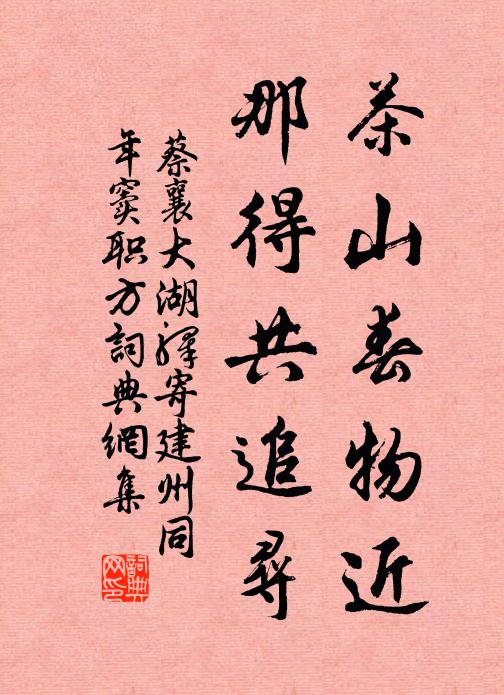 茶山春物近
那得共追尋
蔡襄大湖驛寄建州同
年窦职方詞典網集
詞典
网印